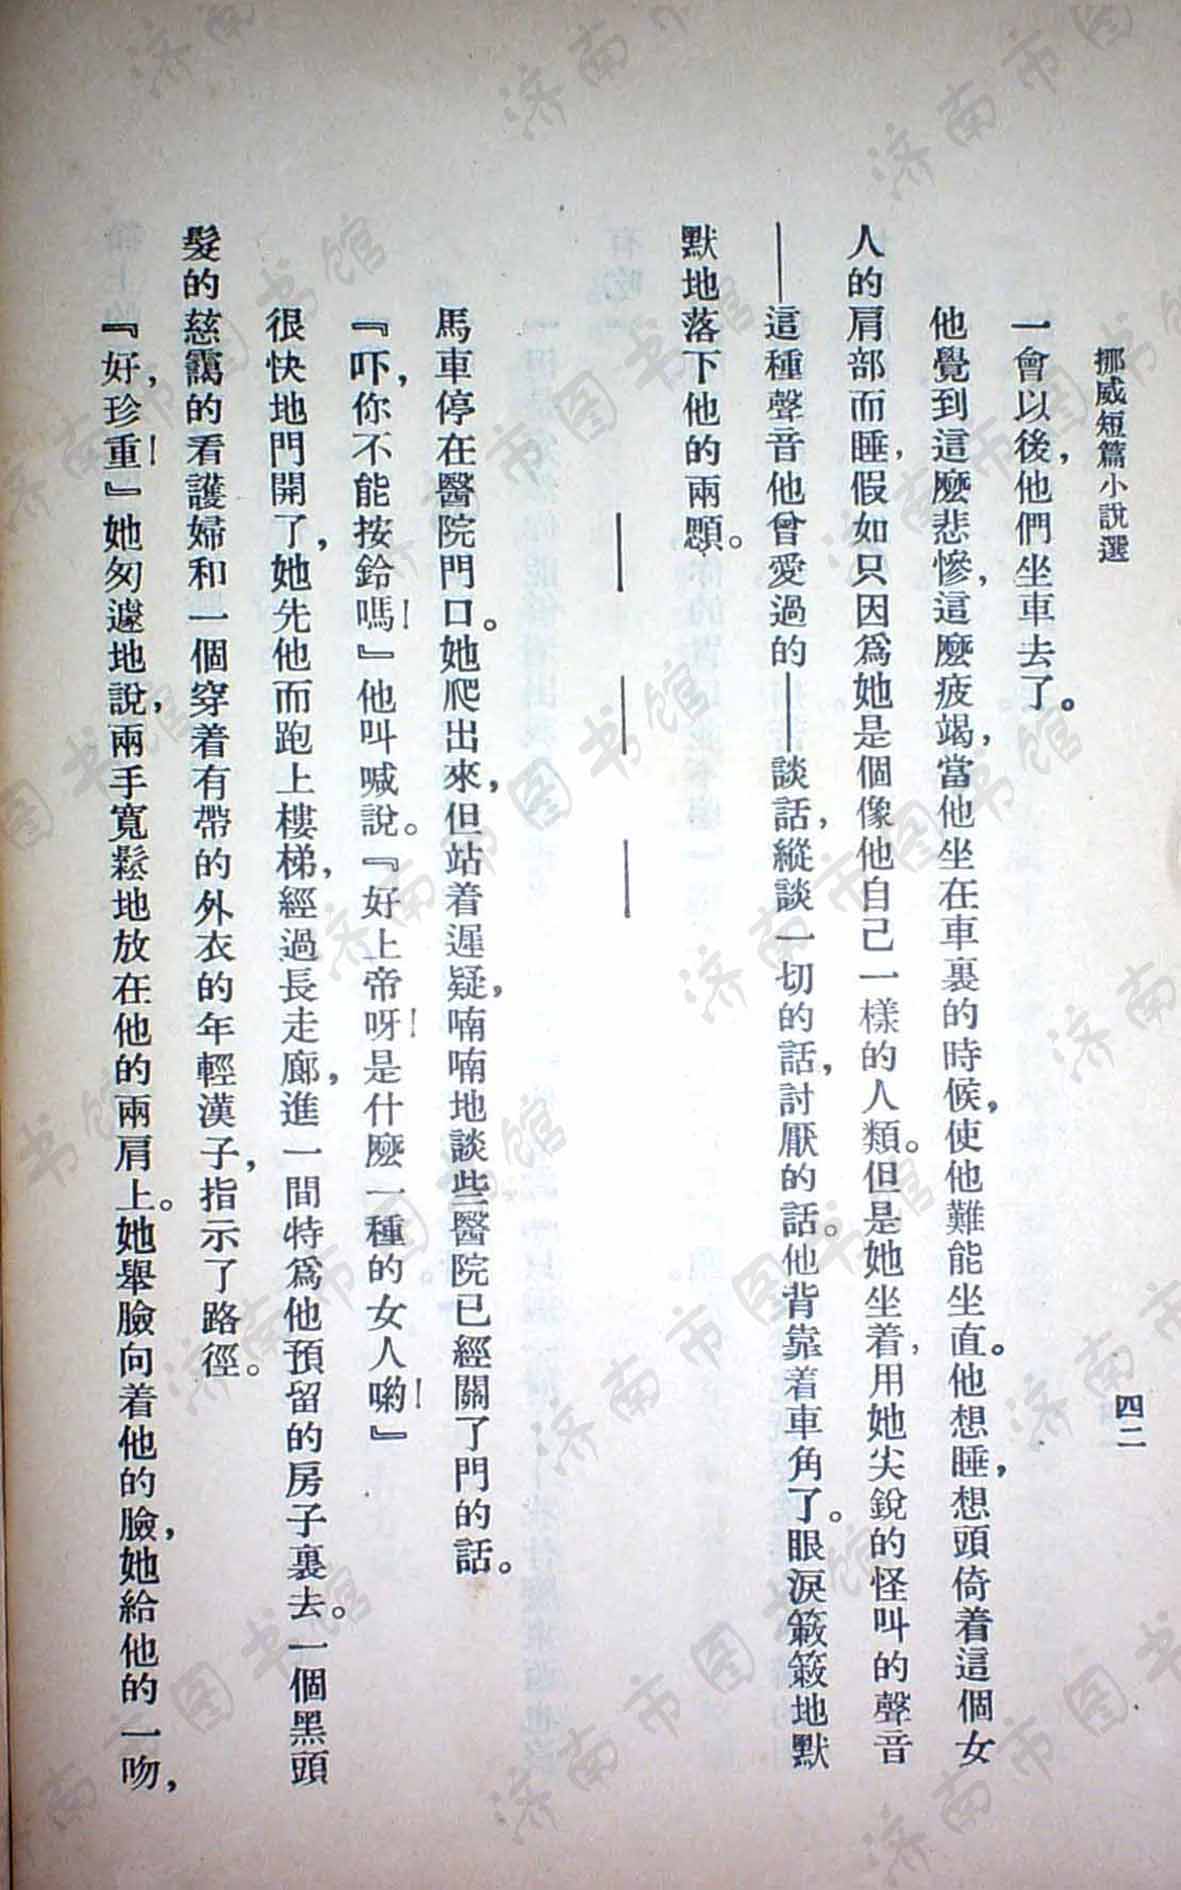 挪威短篇小說選
四二
一會以後，他們坐車去了。
他覺到這麼悲慘，這麼疲竭，當他坐在車裏的時候，使他難能坐直。他想睡，想頭倚着這個女
人的肩部而睡，假如只因爲她是個像他自己一樣的人類。但是她坐着，用她尖銳的怪叫的聲音
——這種聲音他曾愛過的——談話，縱談一切的話，討厭的話。他背靠着車角了。眼淚簌簌地默
默地落下他的兩頰。
———
馬車停在醫院門口。她爬出來，但站着遲疑，喃喃地談些醫院已經關了門的話。
『吓，你不能按鈴嗎！』他叫喊說。『好上帝呀！是什麼一種的女人喲！』
很快地門開了，她先他而跑上樓梯，經過長走廊，進一間特爲他預留的房子裏去。一個黑頭
髮的慈靄的看護婦和一個穿着有帶的外衣的年輕漢子，指示了路徑。
『好，珍重！』她匆遽地說，兩手寬鬆地放在他的兩肩上。她舉臉向着他的臉，她給他的一吻，
济南市图书馆